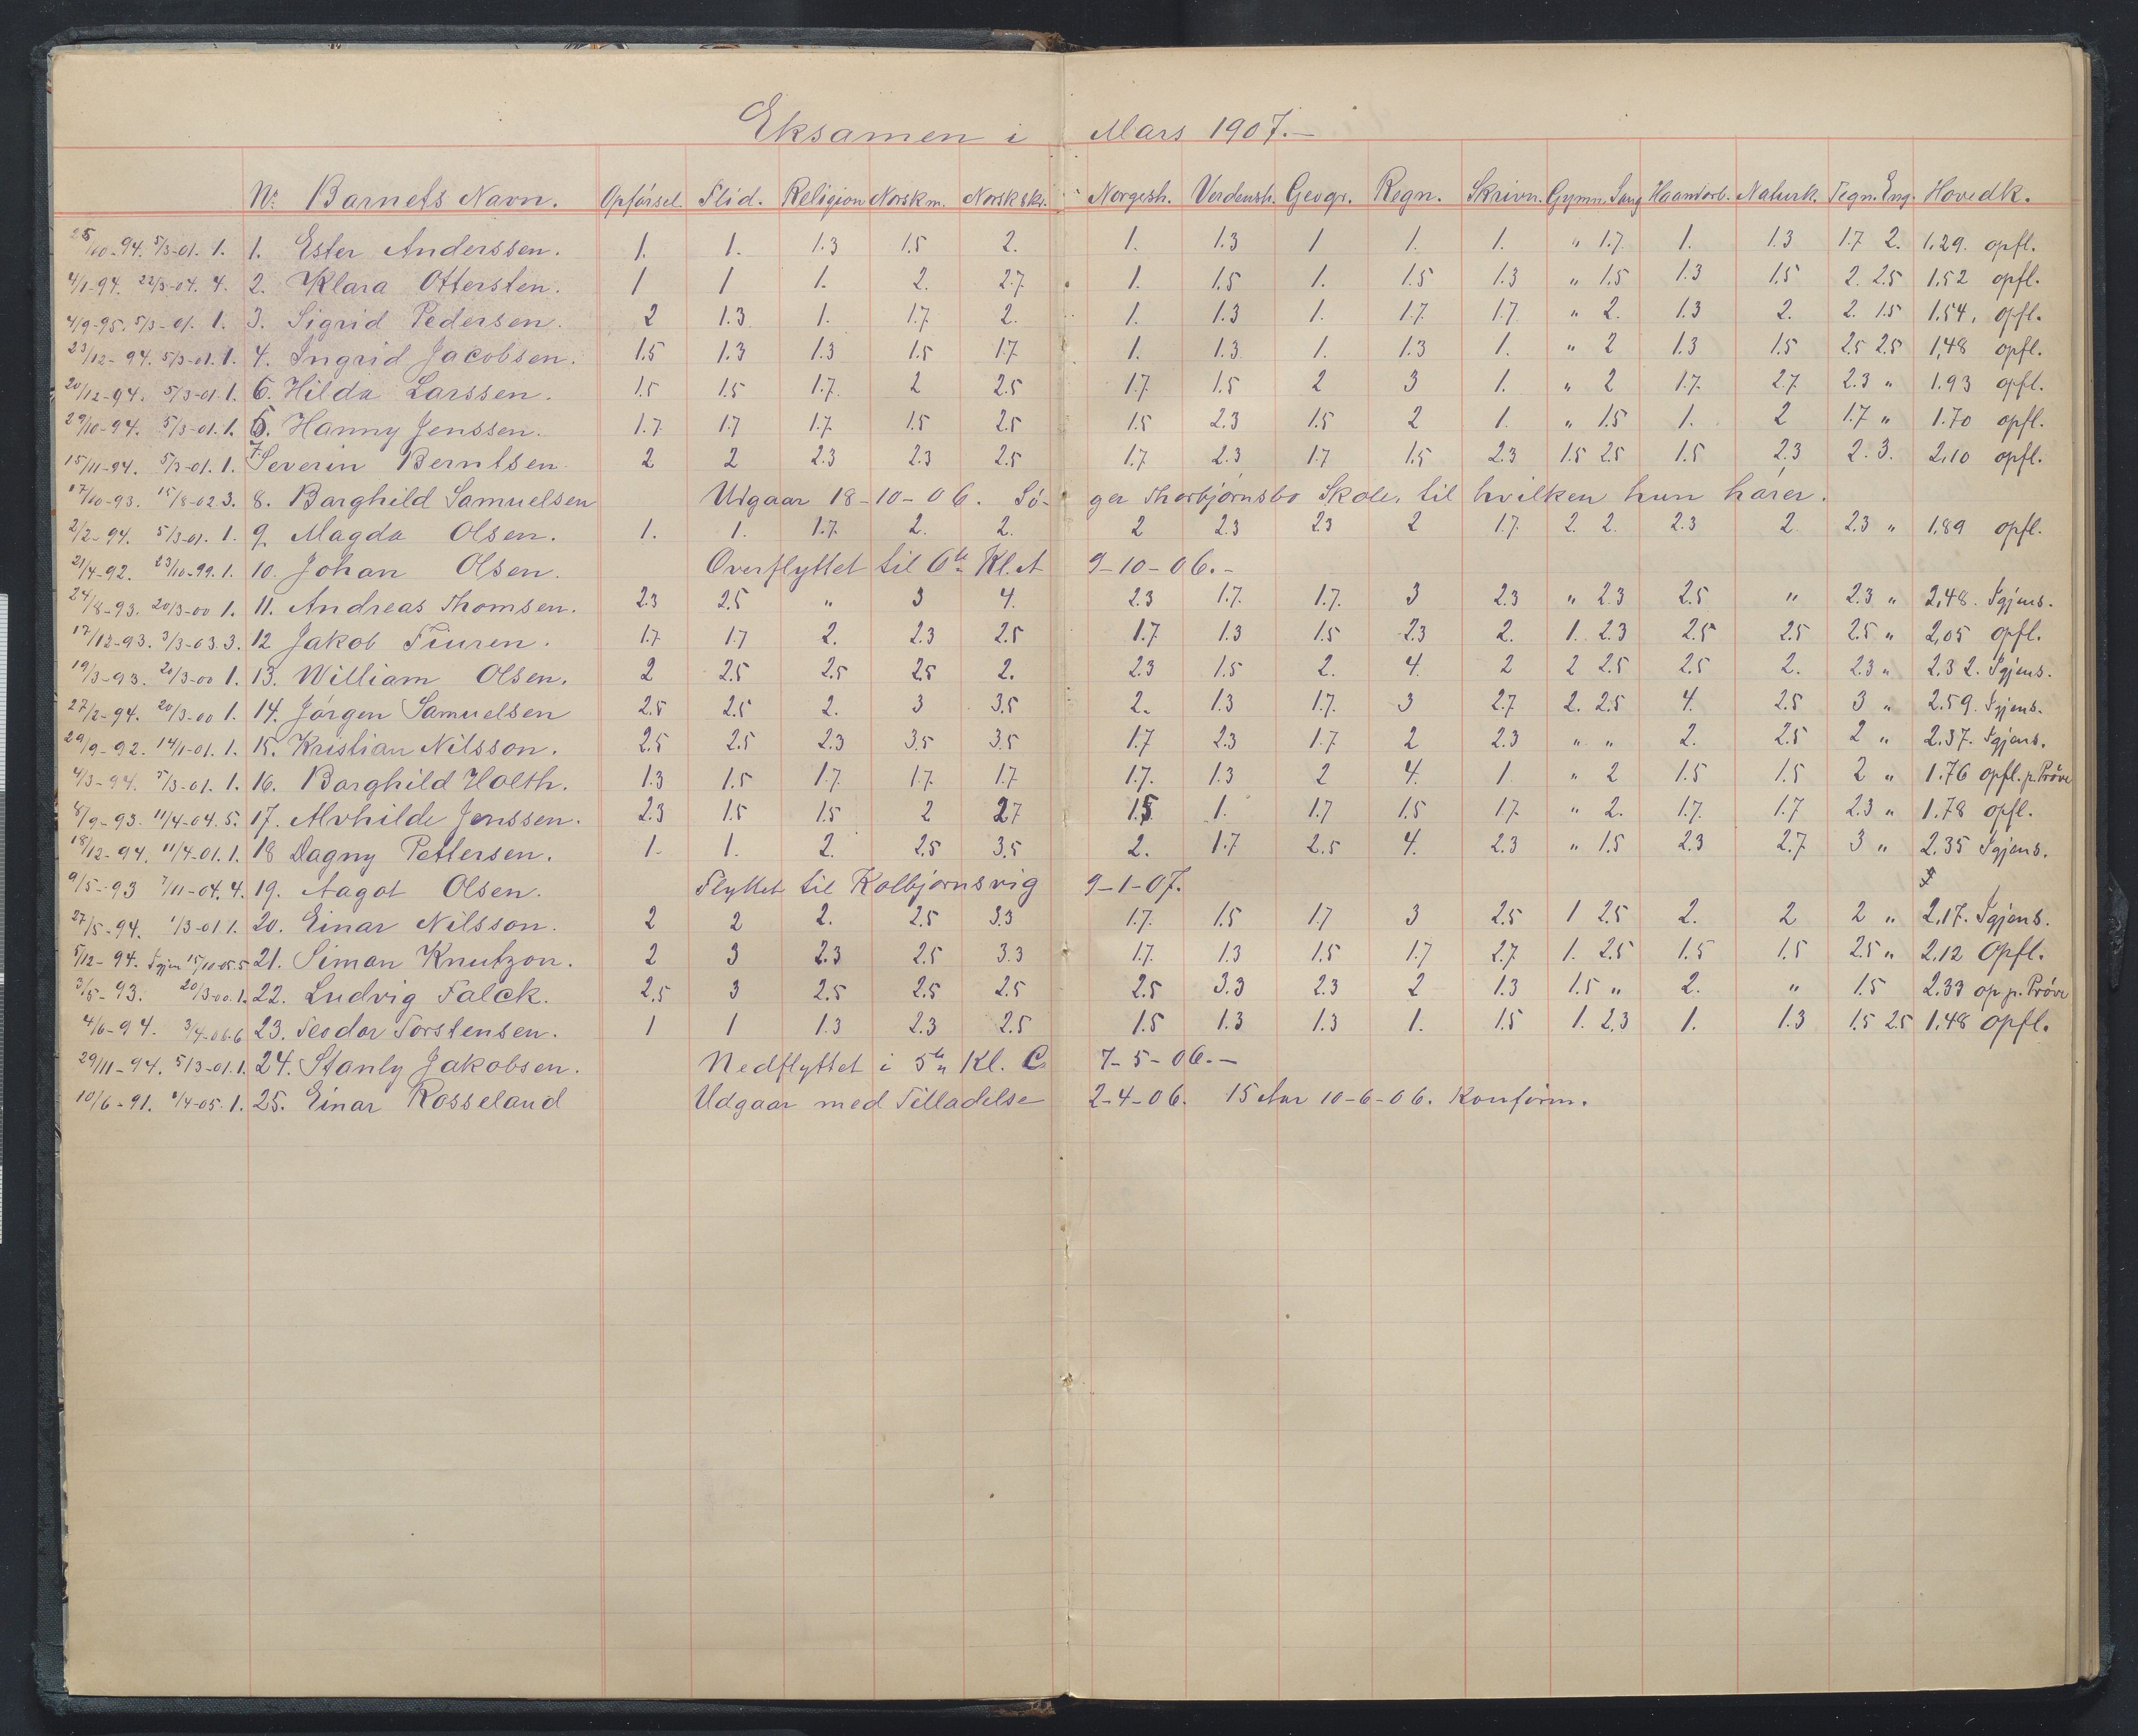 Eksamen i Mars 1907.-
No Barnets Navn. Opførsel. Flid. Religion Norsk m. Norsk skr. Norgesh. Verdensh. Geogr. Regn. Skrivn. Gymn. Sang Haandarb. Naturk. Tegn. Eng. Hovedk.
25/10-94. 5/3-01. 1. 1. Ester Anderssen. 1. 1. 1.3 1.5 2. 1. 1.3 1 1. 1. " 1.7 1. 1.3 1.7 2. 1.29. opfl.
4/1-94. 22/3-04. 4. 2. Klara Ottersten. 1 1 1. 2. 2.7 1. 1.5 1. 1.5 1.3 " 1.5 1.3 1.5 2. 2.5 1.52 opfl.
4/9-95. 5/3-01. 1. 3. Sigrid Pedersen. 2 1.3 1. 1.7 2. 1. 1.3 1. 1.7 1.7 " 2. 1.3 2. 2. 1.5 1.54, opfl.
23/12-94. 5/3-01. 1. 4. Ingrid Jacobsen. 1.5 1.3 1.3 1.5 1.7 1. 1.3 1. 1.3 1. " 2 1.3 1.5 2.5 2.5 1,48 opfl.
20/12-94. 5/3-01. 1. 6. Hilda Larssen. 1.5 1.5 1.7. 2 2.5 1.7 1.5 2 3 1. " 2 1.7. 2.7. 2.3 " 1.93 opfl.
29/10-94. 5/3-01. 1. 5. Hanny Jenssen. 1.7. 1.7 1.7. 1.5 2.5 1.5 2.3 1.5 2 1. " 1.5 1. 2 1.7 " 1.70 opfl.
15/11-94. 5/3-01. 1. 7. Severin Berntsen. 2 2 2.3 2.3 2.5 1.7 2.3 1.7 1.5 2.3 1.5 2.5 1.5 2.3 2. 3. 2,10 opfl.
17/10-93. 15/8-02 3. 8. Barghild Samuelsen Udgaar 18-10-06. Sø-ger Thorbjørnsbo Skole, til hvilken hun hører.
2/2-94. 5/3-01. 1. 9. Magda Olsen. 1. 1. 1.7. 2. 2. 2 2.3 2.3 2 1.7. 2. 2. 2.3 2 2.3 " 1,89 opfl.
21/4-92. 23/10-99. 1. 10. Johan Olsen. Overflyttet til 6te Kl. A 9-10-06.-
24/8-93. 20/3-00 1. 11. Andreas Thomsen. 2.3 2.5 " 3 4. 2.3 1.7. 1.7. 3 2.3 " 2.3 2.5 " 2.3 " 2,48. Igjens.
17/12-93. 3/3-03. 3. 12 Jakob Tiuren. 1.7. 1.7 2. 2.3 2.5 1.7 1.3 1.5 2.3 2. 1. 2.3 2.5 2.5 2.5 " 2,05 opfl.
19/3-93. 20/3-00 1. 13. William Olsen. 2 2.5 2.5 2.5 2. 2.3 1.5 2. 4. 2 2 2.5 2.5 2. 2.3 " 2.32. Igjens.
27/2-94. 20/3-00 1. 14. Jørgen Samuelsen 2.5 2.5 2. 3 3.5 2. 1.3 1.7. 3 2.7 2. 2.5 4. 2.5 3 " 2.59. Igjens.
29/9-92. 14/1-01. 1. 15. Kristian Nilsson. 2.5 2.5 2.3 3.5 3.5 1.7 2.3 1.7 2 2.3 " " 2. 2.5 2 " 2.37. Igjens.
4/3-94. 5/3-01. 1. 16. Barghild Holth. 1.3 1.5 1.7. 1.7. 1.7 1.7. 1.3 2 4. 1 " 2 1.5 1.5 2 " 1.76 opfl. p. Prøve
8/9-93. 11/4-04. 5. 17. Alvhilde Jenssen. 2.3 1.5 1.5 2 2.7 1.5 1. 1.7 1.5 1.7. " 2. 1.7. 1.7 2.3 " 1.78 opfl.
18/12-94. 11/4-01. 1. 18 Dagny Pettersen. 1. 1. 2. 2.5 3.5 2. 1.7 2.5 4. 2.3 " 1.5 2.3 2.7 3 " 2.35 Igjens.
9/5-93 7/11-04. 4. 19. Aagot Olsen. Flyttet til Kolbjørnsvig 9-1-07.
27/5-94. 1/3-01 1. 20. Einar Nilsson. 2 2 2. 2.5 3.3 1.7. 1.5 1.7 3 2.5 1 2.5 2. 2 2 " 2,17. Igjens.
5/12-94. Igjen 15/11-05. 5 21. Simon Knutzon. 2 3 2.3 2.5 3.3 1.7. 1.3 1.5 1.7 2.7. 1. 2.5 1.5 1.5 2.5 " 2,12 Opfl.
3/5-93. 20/3-00. 1. 22. Ludvig Falck. 2.5 3 2.5 2.5 2.5 2.5 3.3 2.3 2 1.3 1.5 " 2. " 1.5 2.33 op p. Prøve
4/6-94. 3/4-06. 6 23. Teodor Torstensen. 1 1 1.3 2.3 2.5 1.5 1.3 1.3 1. 1.5 1. 2.3 1. 1.3 1.5 2.5 1,48 opfl.
29/11-94. 5/3-01. 1. 24. Stanly Jakobsen. Nedflyttet i 5te Kl. C. 7-5-06.-
10/6-91. 4/4-05. 1. 25. Einar Rosseland Udgaar med Tilladelse 2-4-06. 15 Aar 10-6-06. Konfirm.